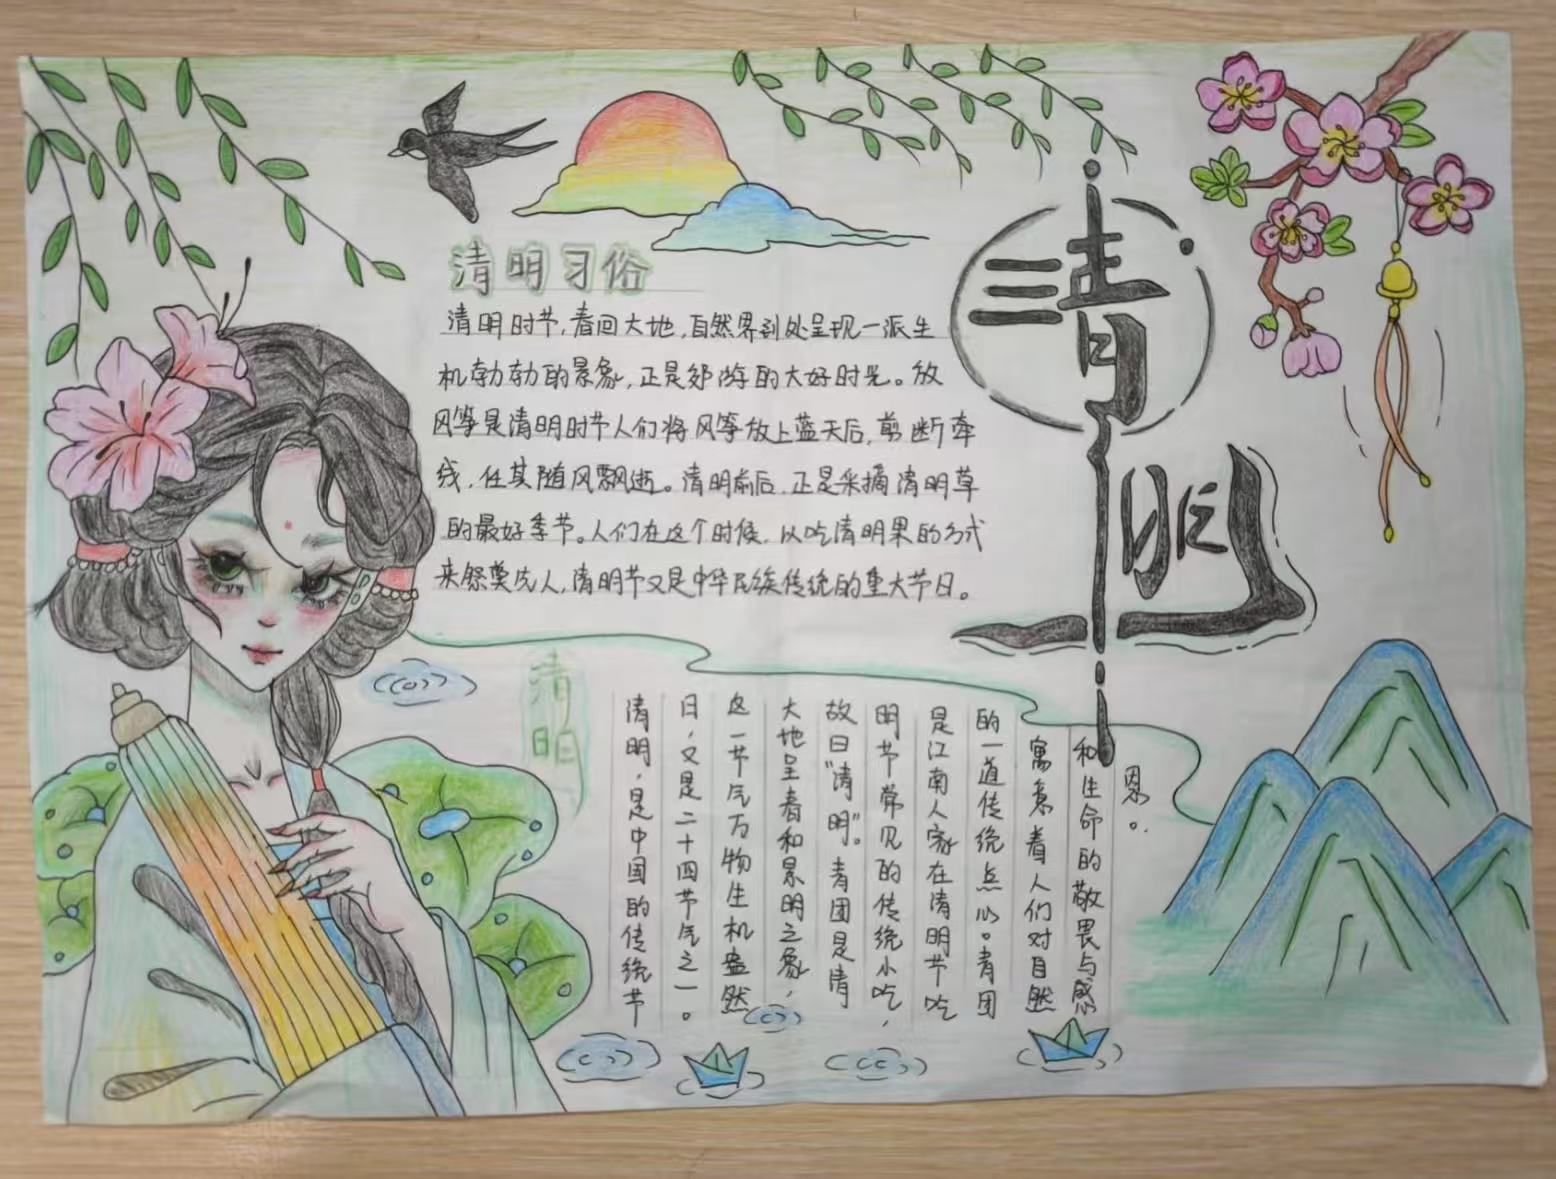 清明
清明习俗
清明时节，春回大地，自然界到处呈现一派生
机勃勃的景象，正是郊游的大好时光。放
风筝是清明时节人们将风筝放上蓝天后，剪断牵
线，任其随风飘逝。清明前后，正是采摘清明草
的最好季节。人们在这个时候，以吃清明果的方式
来祭奠先人，清明节又是中华民族传统的重大节日。
清明
清明，是中国的传统节
日，又是二十四节气之一。
这一节气万物生机盎然
大地呈春和景明之象，
故曰“清明”。青团是清
明节常见的传统小吃，
是江南人家在清明节吃
的一道传统点心。青团
寓意着人们对自然
和生命的敬畏与感
恩。